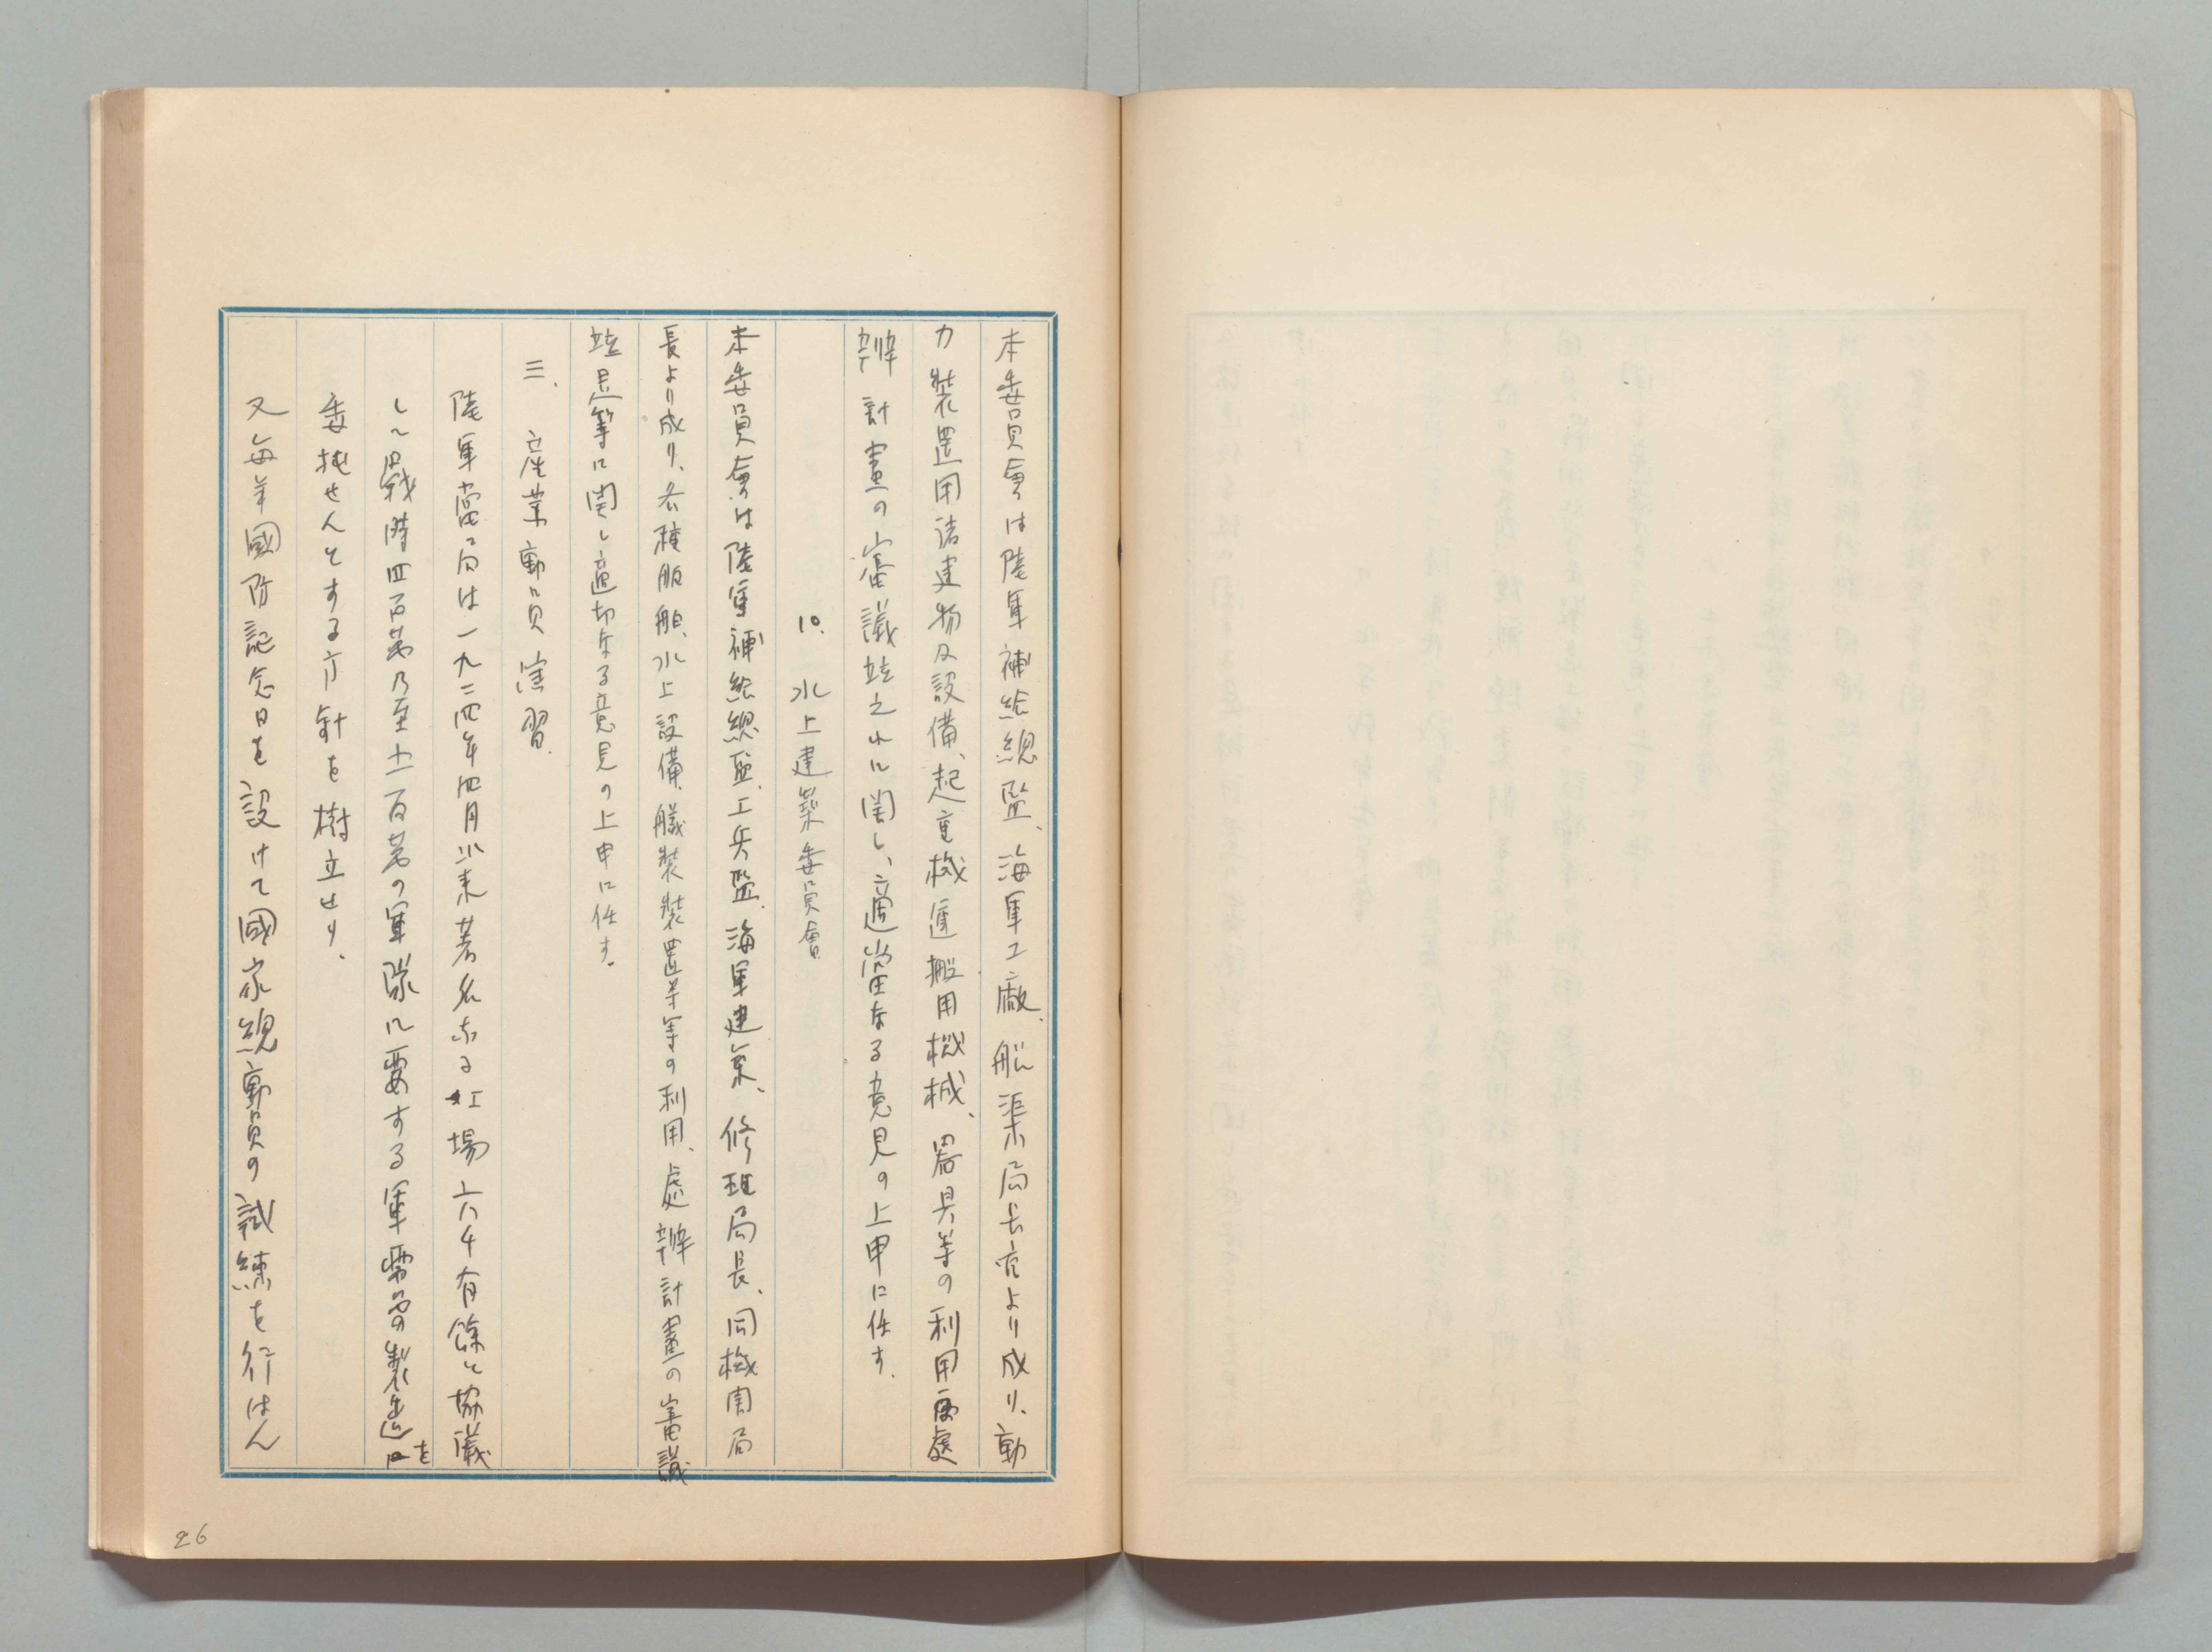 本委員會は陸軍補給總監、海軍工廠、船渠局長官より成り、動
力装置用諸建物及設備、起重機運搬用機械、器具等の利用處
辨計畫の審議竝之れに関し、適當なる意見の上申に任す.
10. 水上建築委員會
本委員會は陸軍補給總監、工兵監、海軍建築、修理局長、同機関局
長より成り、各種船舶、水上設備、艤装装置等の利用、處辨計畫の審議
竝是等に関し適切なる意見の上申に任す.
三、産業動員演習.
陸軍當局は一九二四年四月以来著名なる工場六千有餘と協議
し戰時四百萬乃至千百萬の軍隊に要する軍需品の製造を
委托せんとする方針を樹立せり.
又毎年國防記念日を設けて國家總動員の試練を行はん
26